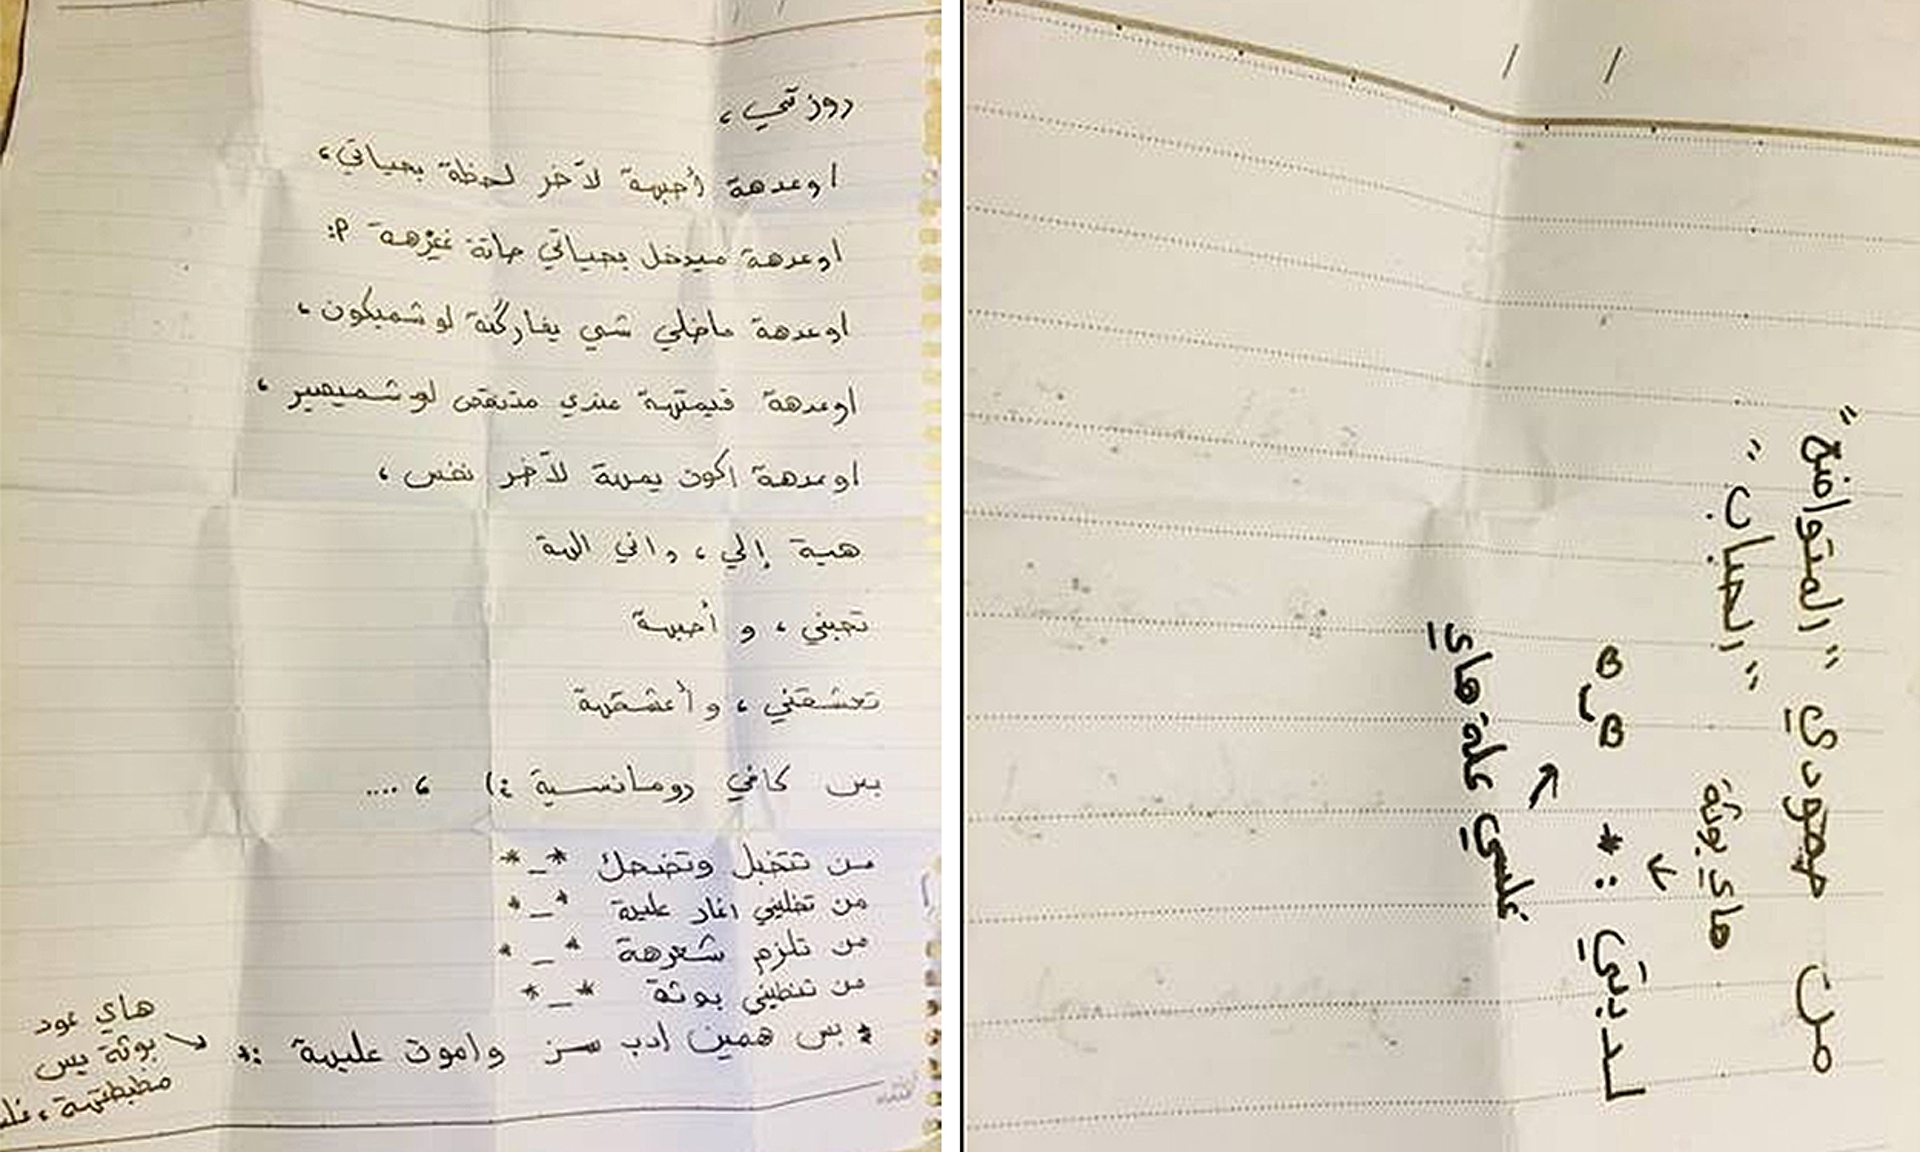 روزتي،
اوعدهة أحبهة لآخر لحظة بحياتي،
اوعدهة ميدخل بحياتي حاتة غيرهة :P
اوعدهة ماخلي شي يفاركنة لو شميكون،
اوعدهة قيمتهة عندي متنقص لو شميصير،
اوعدهة اكون يمهة لآخر نفس،
هية إلي، واني الهة
تحبني، و أحبهة
تعشقني، و أعشقهة
بس كافي رومانسية :) ، ....
من تتخبل وتضحك *_*
من تخليني اغار عليهة *_*
من تلزم شعرهة *_*
من تنطيني بوثة *_*
* بس همين ادب سز واموت عليهة :*
هاي عود
بوثة بس
مطبطتهة،
من حمودي "المتواضع"
"الحباب"
هاي بوثة
لدبتي :* B B
غلسي علة هاي